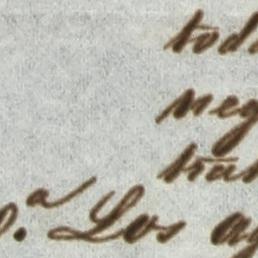 tod
neg
tran
p.a Los ag